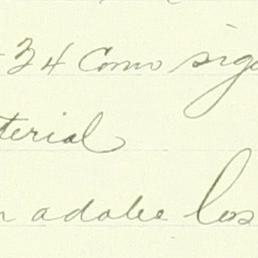 34 Como sig
terial
adobe los